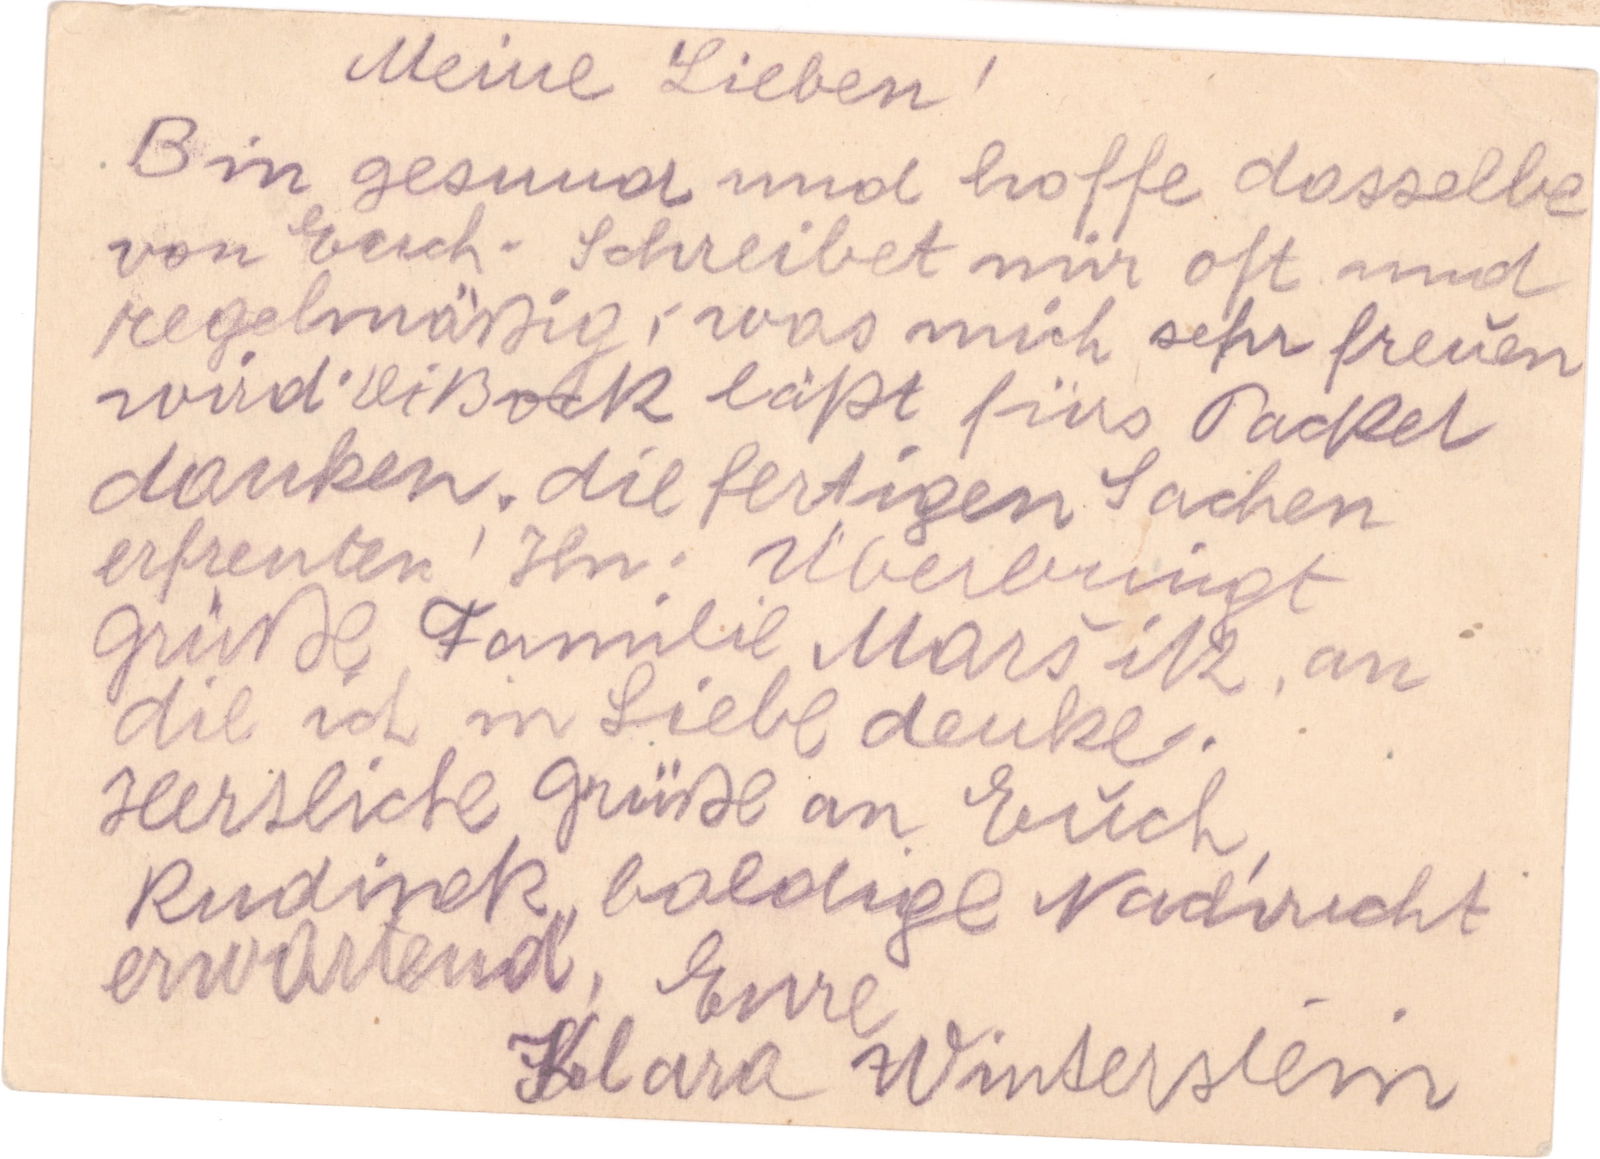 Meine Lieben!
Bin gesund und hoffe dasselbe
von Euch. Schreibet mir oft und
regelmäßig, was mich sehr freuen
wird. läßt fürs Packel
danken. die fertigen Sachen
erfreuten Ihn. Überbringt
Grüße, Familie Maršitz, an
die ich in Liebe denke.
Herzliche Grüße an Euch,
Rudinek, baldige Nachricht
erwartend, Eure
Klara Winterstein